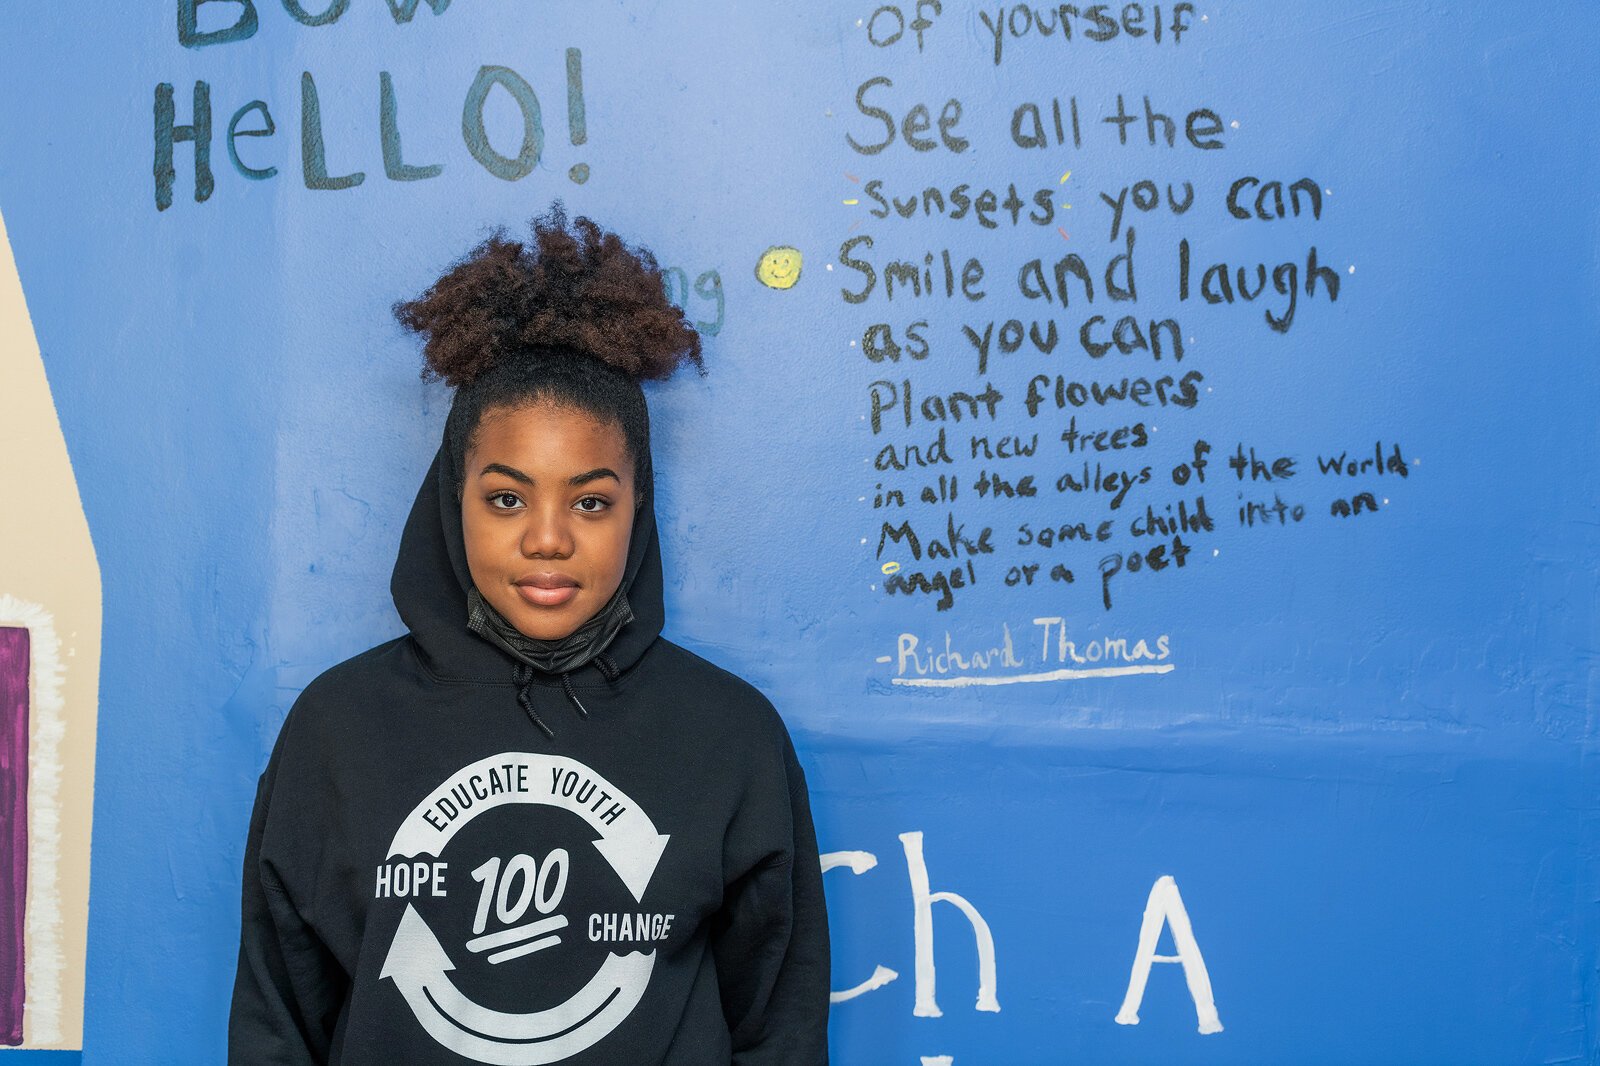 HeLLO!
of yourself
See all the
sunsets you can
Smile and laugh
as you can
Plant flowers
and new trees
in all the alleys of the world
Make some child into an
angel or a poet
-Richard Thomas
EDUCATE YOUTH
HOPE
100
CHANGE
ch A